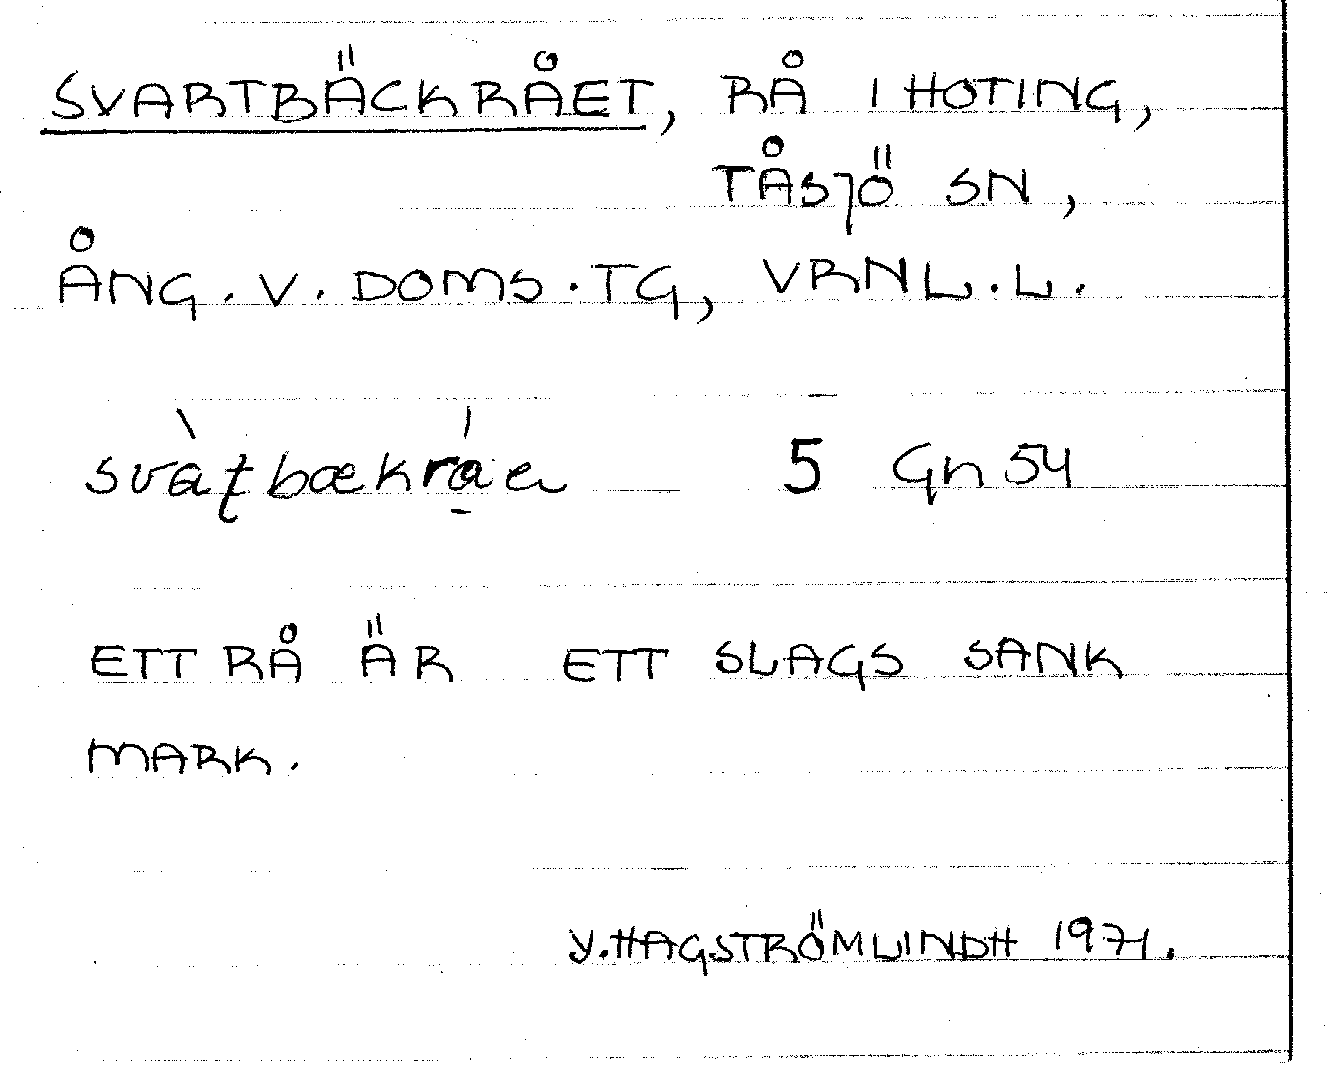 SVARTBÄCKRÅET, RÅ I HOTING,
TÅSJÖ SN,
ÅNG. V. DOMS. TG, VRNL. L.
svàʈbækrá̱en 5 Gn 54
ETT RÅ ÄR ETT SLAGS SANK
MARK.
Y. HAGSTRÖMLINDH 1971.